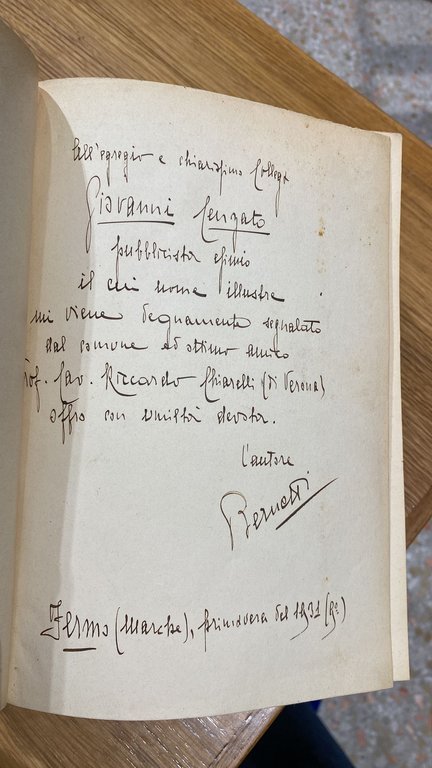 All'egregio e chiarissimo Collega
Giovanni Cengato
pubblicista esimio
il cui nome illustre
mi viene degnamente segnalato
dal comune ed ottimo amico
Prof. Cav. Riccardo Chiarelli (di Verona)
offro con umiltà devota.
l'autore
Bernetti
Fermo (Marche), primavera del 1931 (9º)